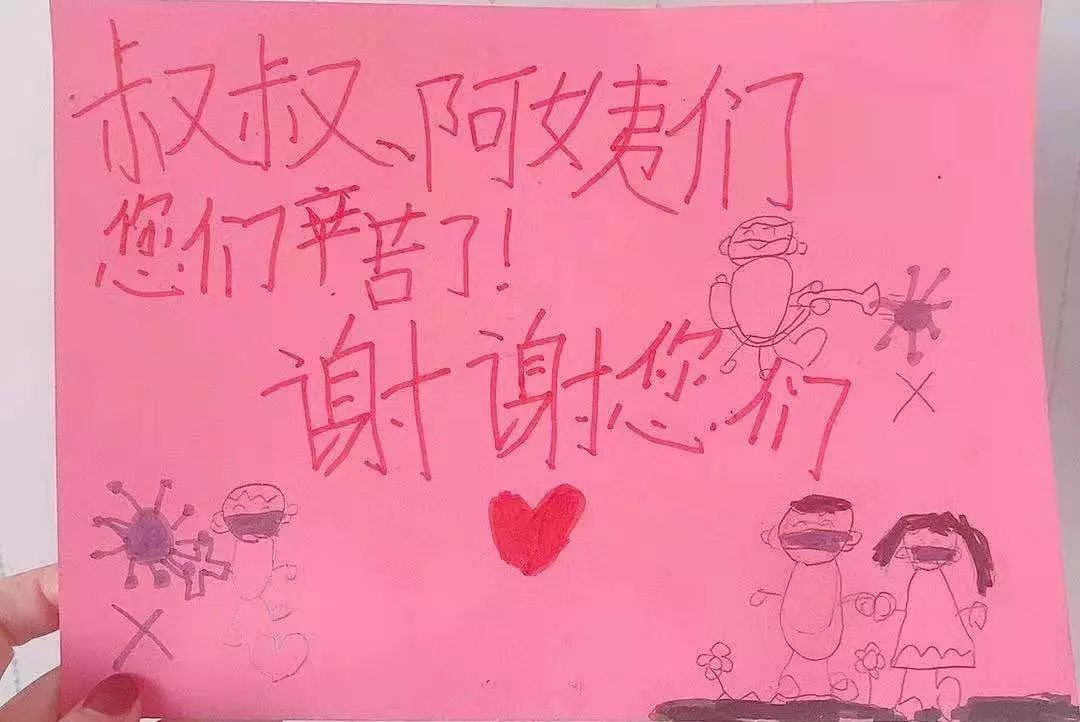 叔叔、阿姨们
您们辛苦了！
谢谢您们